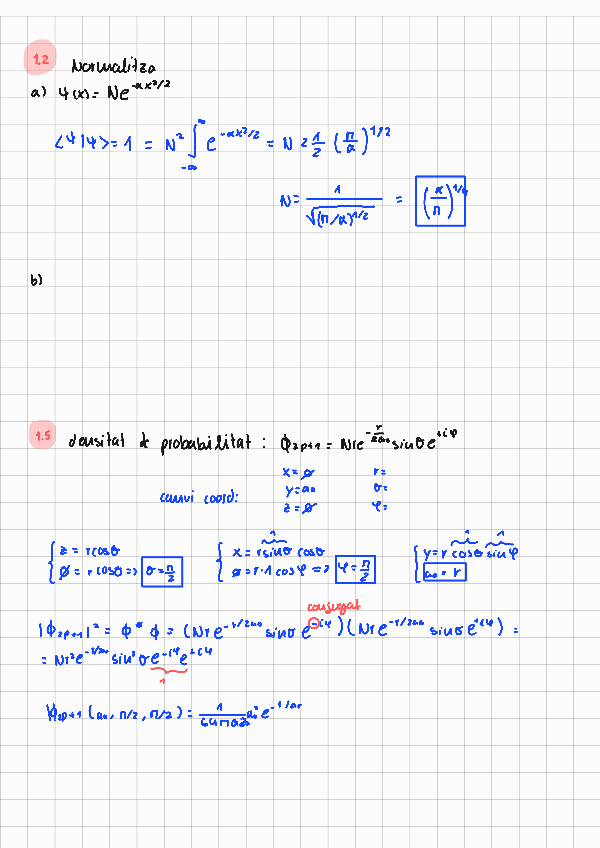 1.2 Normalitza
a) Ψ(x) = Ne^{-αx²/2}
<Ψ|Ψ> = 1 = N² ∫_{-∞}^{∞} e^{-αx²/2} = N 2 1/2 (π/α)^{1/2}
N = 1/√((π/α)^{1/2}) = (α/π)^{1/4}
b)
1.5 densitat de probabilitat : ϕ_{2p+1} = Nre^{-r/2a₀} sinθ e^{+iφ}
canvi coord:
x = ∅ r =
y = a₀ θ =
z = ∅ φ =
{ z = r cosθ
∅ = r cosθ => θ = π/2
1
{ x = r sinθ cosθ
0 = r·1 cosφ => φ = π/2
1 1
{ y = r cosθ sinφ
a₀ = r
conjugat
|ϕ_{2p+1}|² = ϕ* ϕ = (Nr e^{-r/2a₀} sinθ e^{-iφ}) (Nr e^{-r/2a₀} sinθ e^{+iφ}) =
= Nr² e^{-r/a₀} sin² θ e^{-iφ} e^{+iφ}
1
|ϕ_{2p+1} (a₀, π/2, π/2) = 1/64πa₀⁵ a₀² e^{-1/a₀}